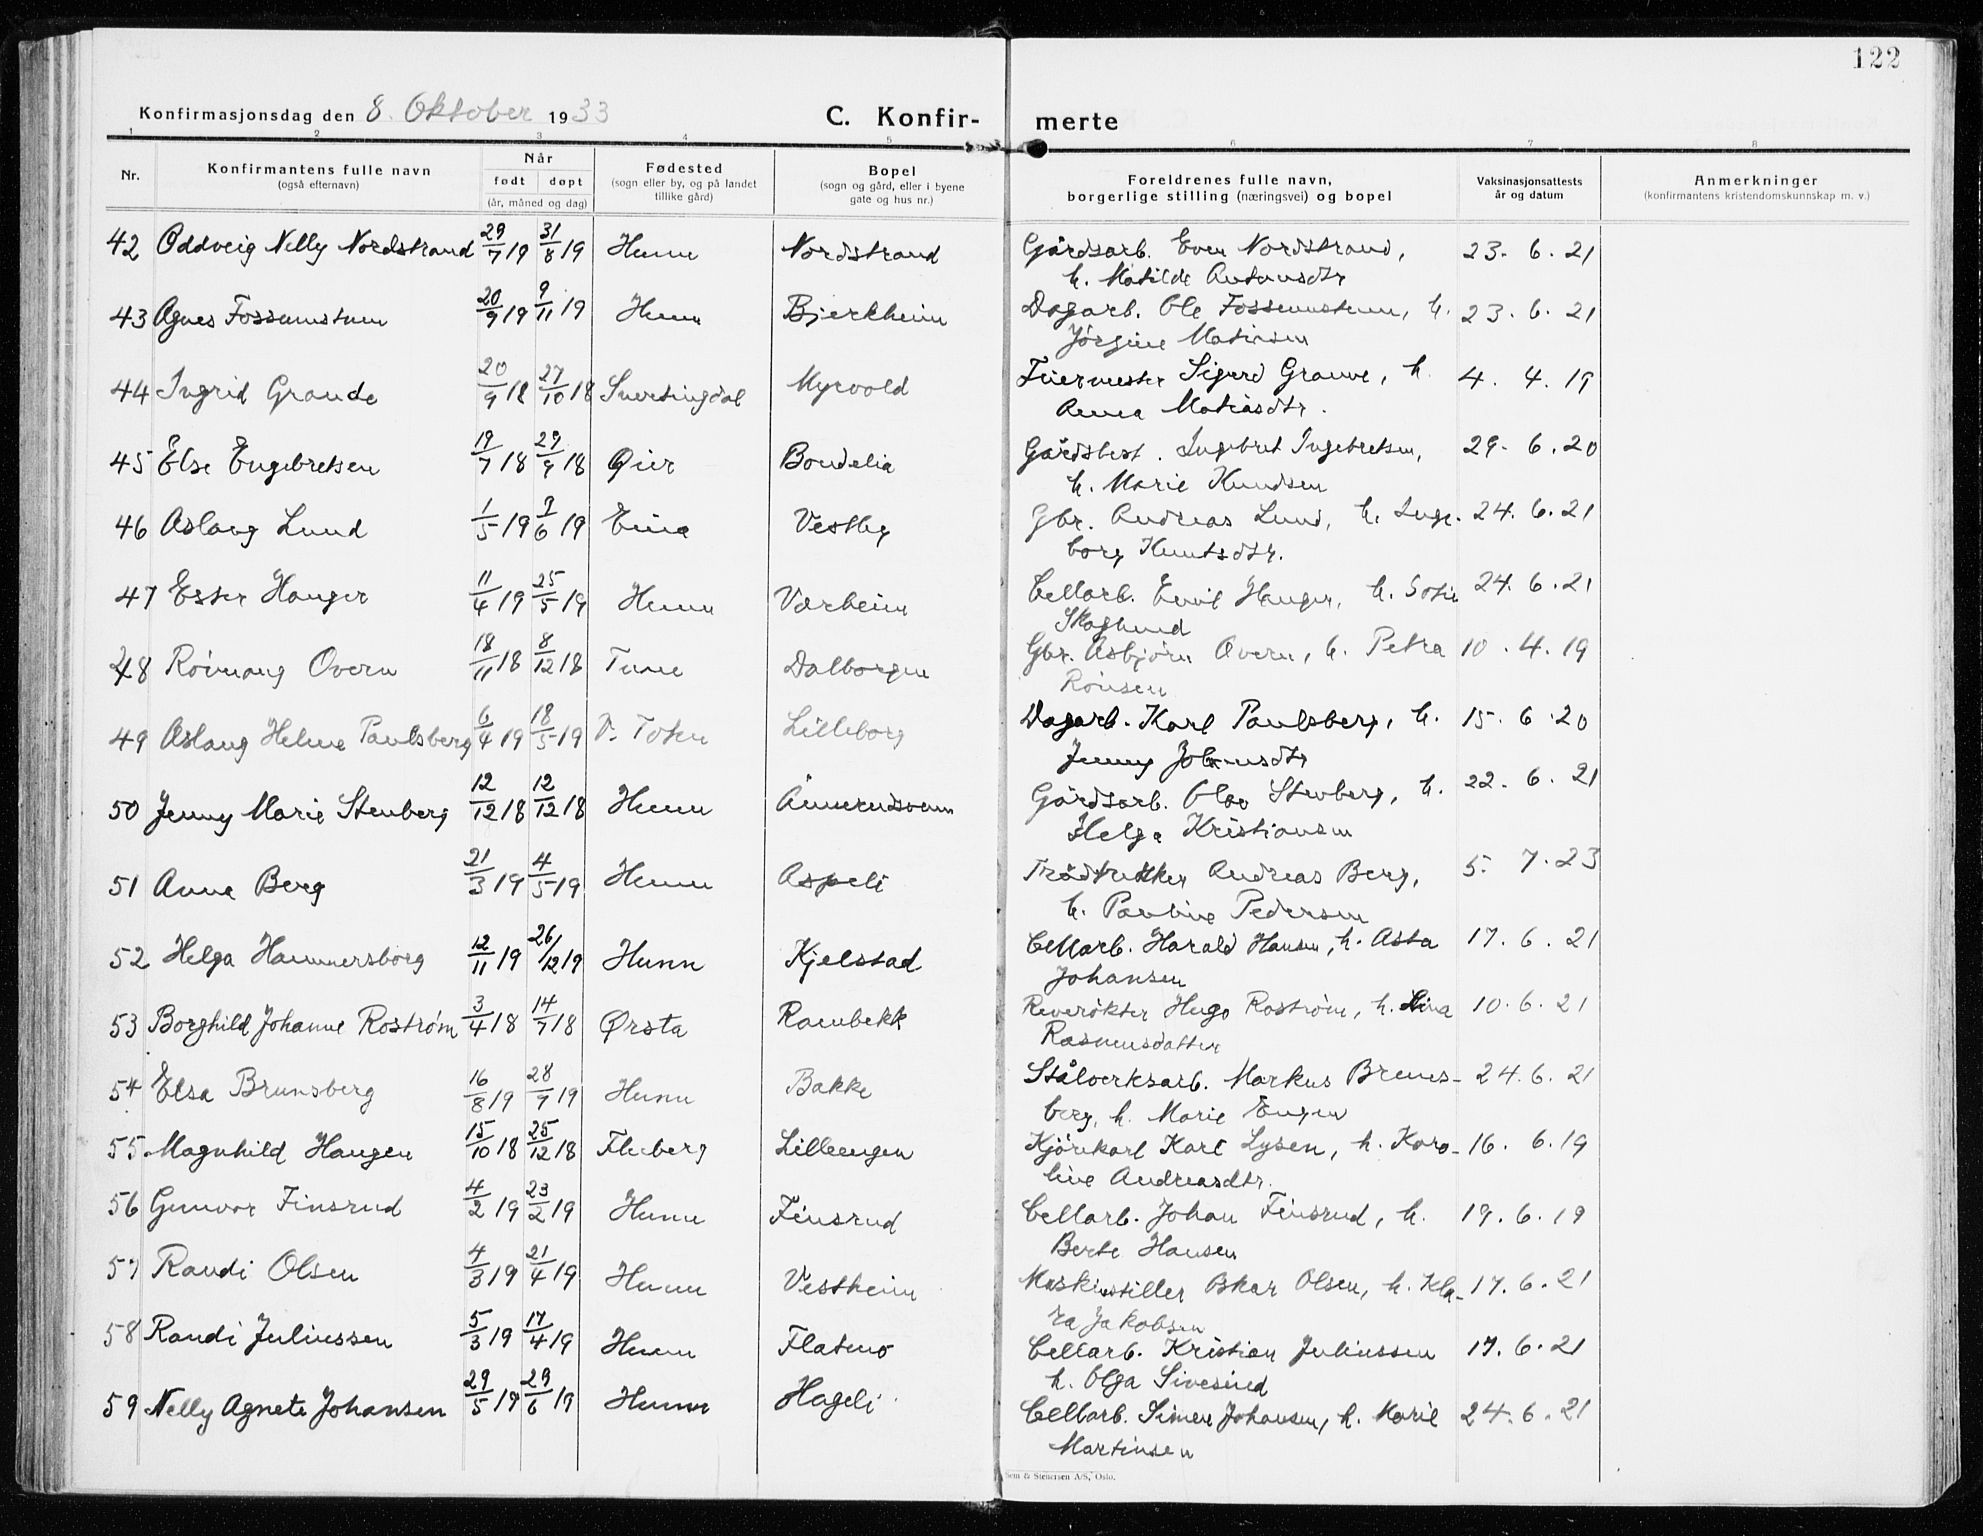 122
Konfirmasjonsdag den 8. Oktober 1933 C. Konfir- merte
1 2 3 4 5 6 7 8
Nr. Konfirmantens fulle navn (også efternavn) Når født døpt (år, måned og dag) Fødested (sogn eller by, og på landet tillike gård) Bopel (sogn og gård, eller i byene gate og hus nr.) Foreldrenes fulle navn, borgerlige stilling (næringsvei) og bopel Vaksinasjonsattests år og datum Anmerkninger (konfirmantens kristendomskunnskap m. v.)
42 Oddveig Nelly Nordstrand 29/7 19 31/8 19 Hunn Nordstrand Gårdsarb. Even Nordstrand, 23. 6. 21
h. Matilde Antonsdtr
43 Agnes Fossumstuen 20/9 19 9/11 19 Hunn Bjerkheim Dagarb. Ole Fossumstuen, h. 23. 6. 21
Jørgine Matiesen
44 Ingrid Graude 20/9 18 27/10 18 Snertingdal Myrvold Feiermester Sigurd Grauve, h. 4. 4. 19
Anna Matiasdtr.
45 Else Engebretsen 19/7 18 29/9 18 Øier Bondelia Gårdsbest. Ingebret Ingebretsen, 29. 6. 20
h. Marie Knudsen
46 Aslaug Lund 1/5 19 9/6 19 Eina Vestby Gbr. Andreas Lund, h. Inge- 24. 6. 21
borg Knutsdtr.
47 Ester Hauger 11/4 19 25/5 19 Hunn Varheim Cellarb. Emil Hauger, h. Sofie 24. 6. 21
Skoglund
48 Røinaug Overn 18/11 18 8/12 18 Tune Dalborgen Gbr. Asbjørn Overn, h. Petra 10. 4. 19
Rønsen
49 Aslaug Helene Paulsberg 6/4 19 18/5 19 V. Toten Lilleborg Dagarb. Karl Paulsberg, h. 15. 6. 20
Jenny Johansdtr
50 Jenny Marie Stenberg 12/12 18 12/12 18 Hunn Åmundsveen Gårdsarb. Olav Stenberg, h. 22. 6. 21
Helga Kristiansen
51 Anna Berg 21/3 19 4/5 19 Hunn Aspeli Trådtrekker Andreas Berg, 5. 7. 23
h. Pauline Pedersen
52 Helga Hammersborg 12/11 19 26/12 19 Hunn Kjelstad Cellarb. Harald Hansen, h. Asta 17. 6. 21
Johansen
53 Borghild Johanne Rostrøm 3/4 18 14/7 18 Ørsta Rambekk Reverøkter Hugo Rostrøm, h. Lina 10. 6. 21
Rasmusdatter
54 Elsa Brunsberg 16/8 19 28/9 19 Hunn Bakke Stålverksarb. Markus Bruns- 24. 6. 21
berg, h. Marie Engen
55 Magnhild Haugen 15/10 18 25/12 18 Fluberg Lilleengen Kjørekarl Karl Lysen, h. Karo- 16. 6. 19
line Andreasdtr.
56 Gunvor Finsrud 4/2 19 23/2 19 Hunn Finsrud Cellarb. Johan Finsrud, h. 19. 6. 19
Berte Hansen
57 Randi Olsen 4/3 19 21/4 19 Hunn Vestheim Maskinstiller Oskar Olsen, h. Kla- 17. 6. 21
ra Jakobsen
58 Randi Juliussen 5/3 19 17/4 19 Hunn Flatmo Cellarb. Kristian Juliussen 17. 6. 21
h. Olga Sivesind
59 Nelly Agnete Johansen 29/5 19 29/6 19 Hunn Hageli Cellarb. Simen Johansen, h. Marie 24. 6. 21
Martinsen
Sem & Stenersen A/S, Oslo.